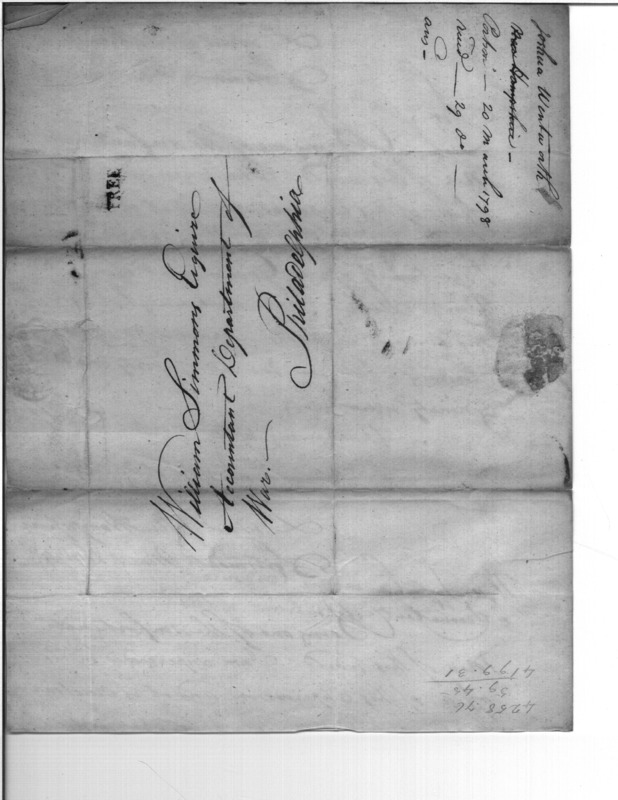 Joshua Wentworth
New Hampshire -
20 March 1798
recd — 29 do —
ans -
FREE
William Simmons Esquire
Accountant Department of
War. —
Philadelphia
4258.76
59.45
4199.31